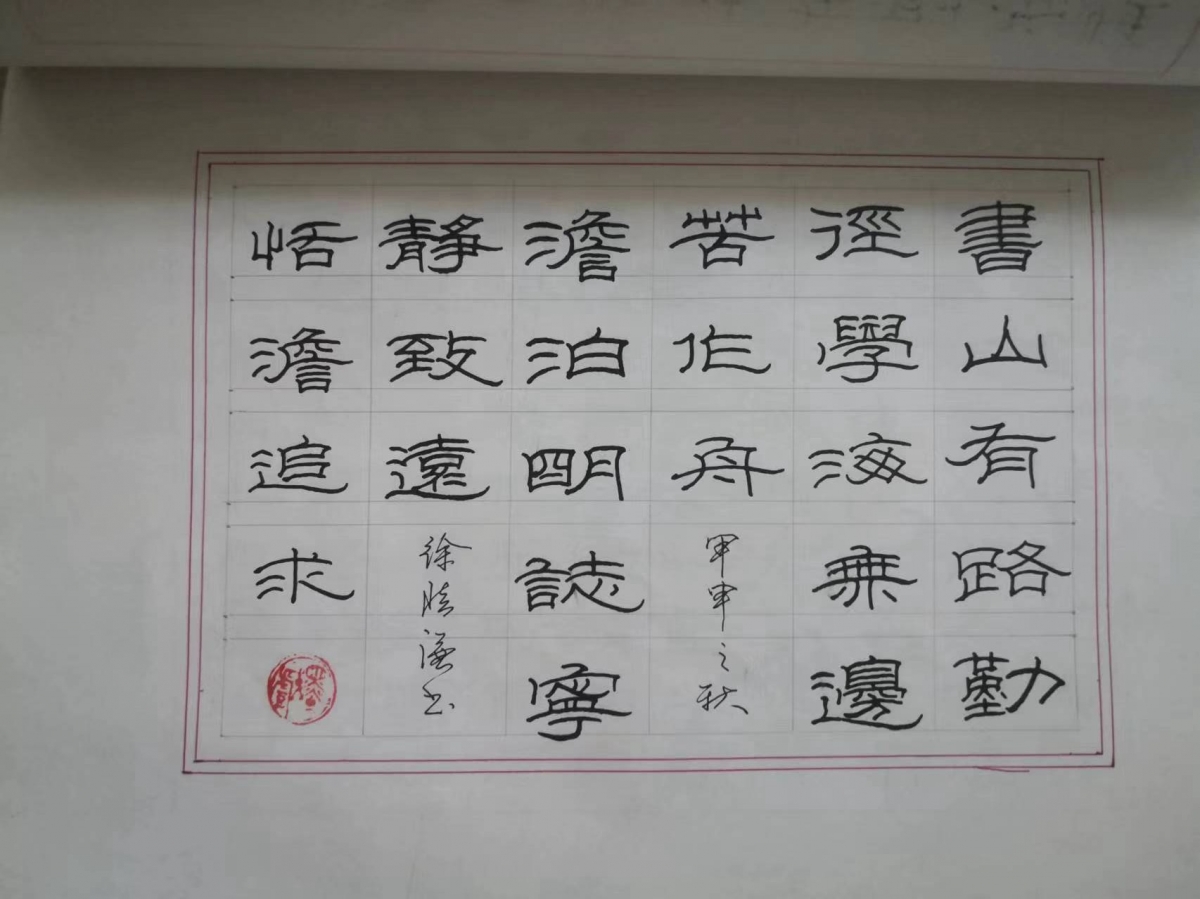 書山有路勤
徑學海無邊
苦作舟
甲申之秋
澹泊明誌寧
靜致遠
恬澹追求